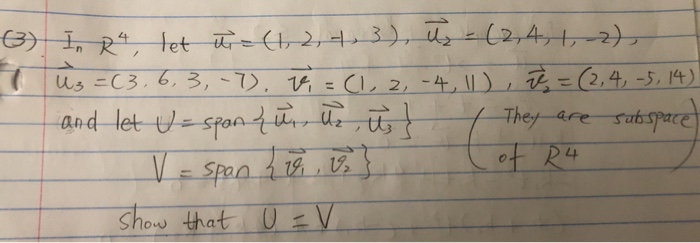 (3) In R⁴, let u⃗₁ = (1, 2, -1, 3), u⃗₂ = (2, 4, 1, -2),
u⃗₃ = (3, 6, 3, -7). v⃗₁ = (1, 2, -4, 11), v⃗₂ = (2, 4, -5, 14)
and let U = span {u⃗₁, u⃗₂, u⃗₃} (They are subspace
V = span {v⃗₁, v⃗₂} of R4)
show that U = V